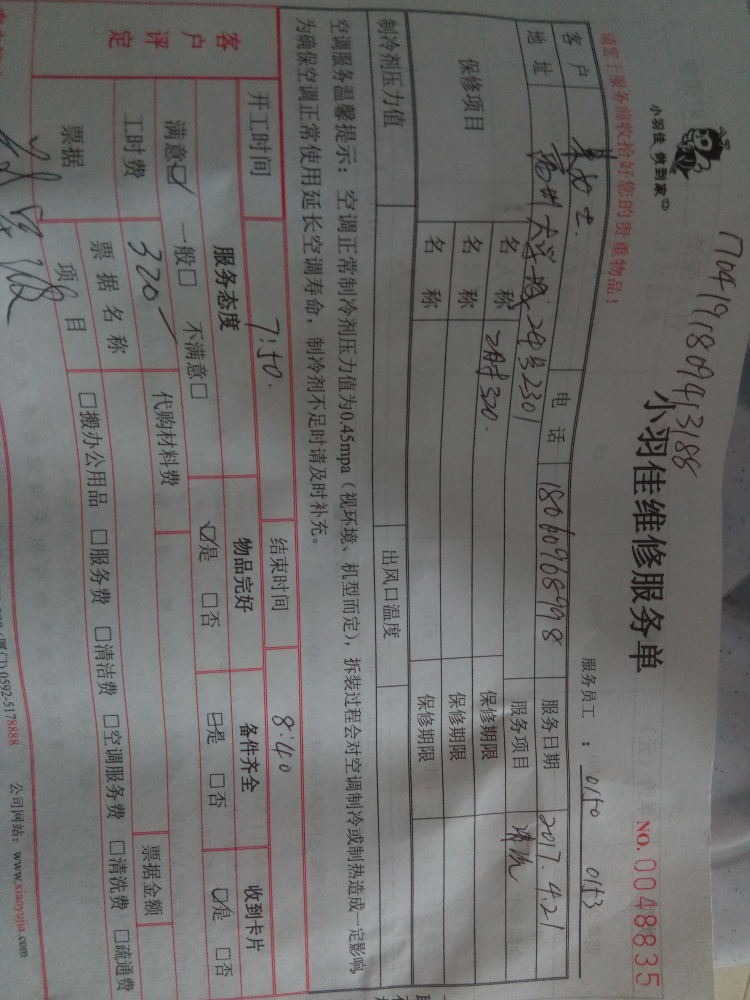 170419180943188
小羽佳 做到家
小羽佳维修服务单
NO.0048835
请您于服务前收拾好您的贵重物品！
服务员工：0150 0153
客户 女士 电话 18060968498 服务日期 2017.4.21
地址 大学城 24号2301 服务项目
保修项目 名称 320. 保修期限
名称 保修期限
名称 保修期限
制冷剂压力值 出风口温度
空调服务温馨提示：空调正常制冷剂压力值为0.45mpa（视环境、机型而定），拆装过程会对空调制冷或制热造成一定影响，
为确保空调正常使用延长空调寿命，制冷剂不足时请及时补充。
开工时间 7:50. 结束时间 8:40
客户评定 服务态度 物品完好 备件齐全 收到卡片
满意☑ 一般□ 不满意□ ☑是 □否 ☑是 □否 ☑是 □否
工时费 320 代购材料费
票据 票据名称 票据金额
项目 □搬办公用品 □服务费 □清洁费 □空调服务费 □清洗费 □疏通费
(厦门)0592-5178888 公司网站：www.xiaoyujia.com